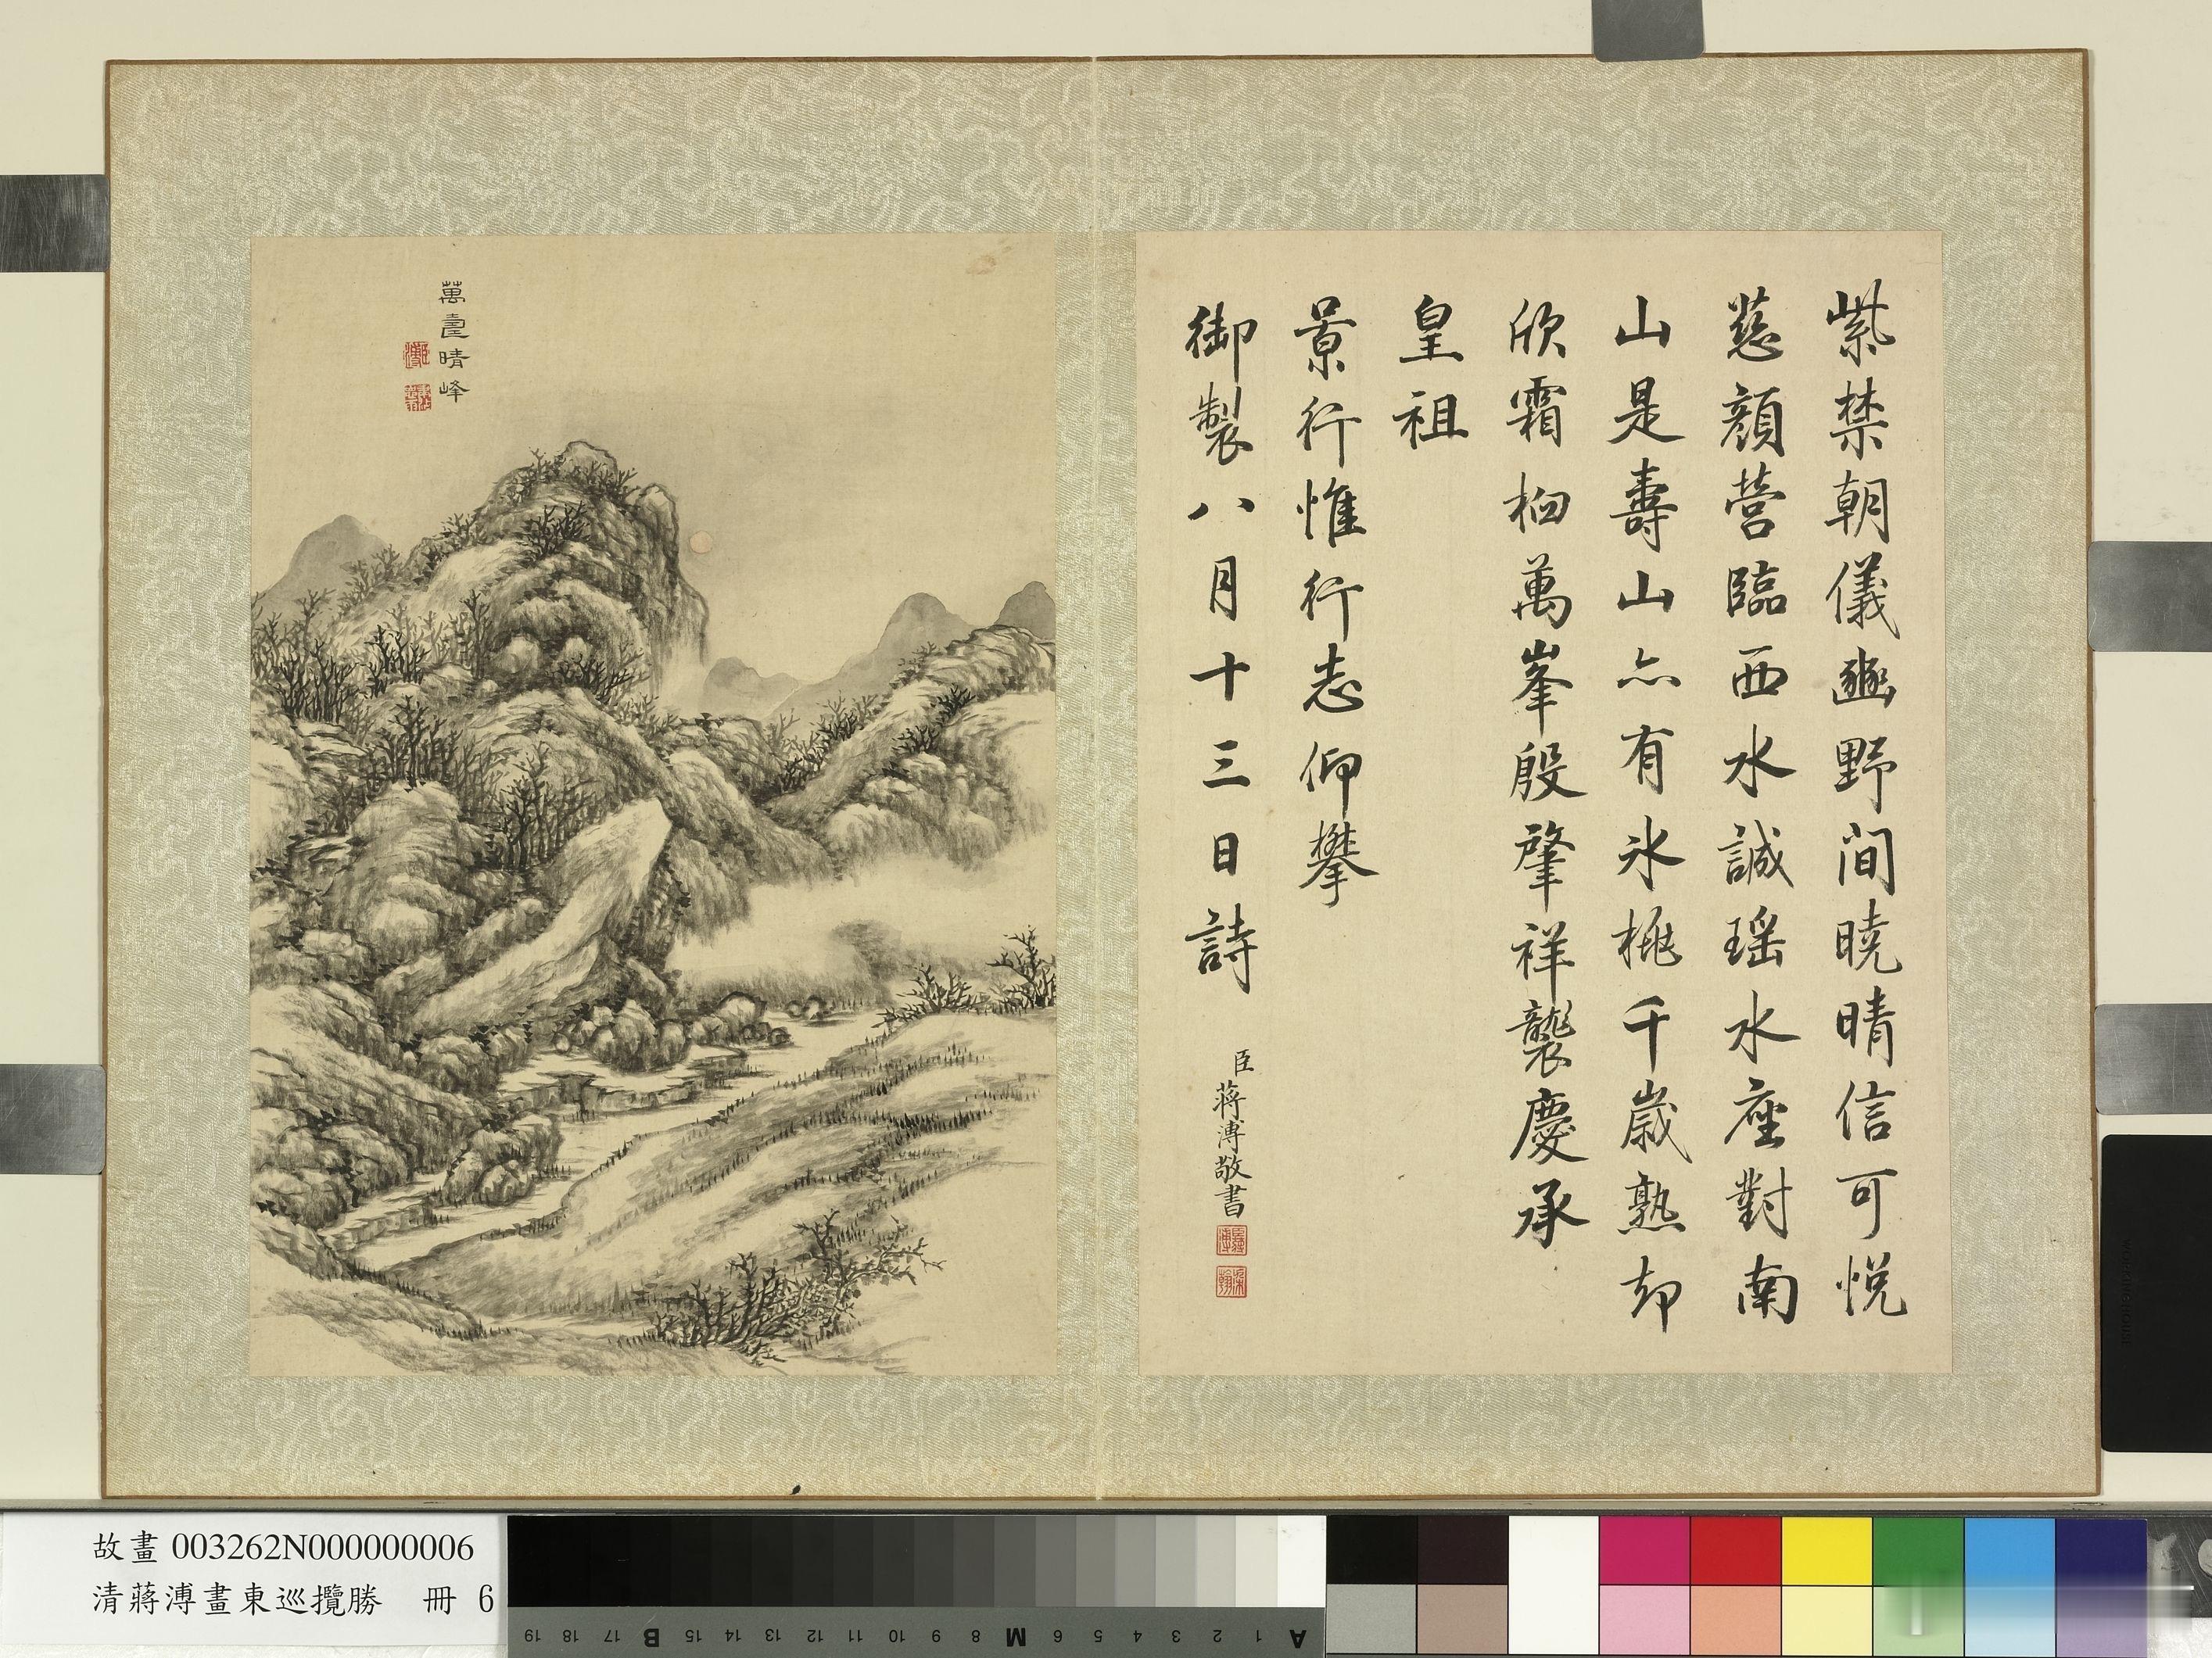 紫禁朝儀豳野間曉晴信可悅
慈顏營臨西水誠瑤水座對南
山是壽山山亦有冰桃千歲熟却
欣霜柏萬峯殷肇祥襲慶承
皇祖
景行惟行志仰攀
御製八月十三日詩
臣蔣溥敬書
萬壑晴峰
故畫 003262N000000006
清蔣溥畫東巡攬勝 冊 6
19 18 17 B 15 14 13 12 11 10 9 8 M 6 5 4 3 2 1 A